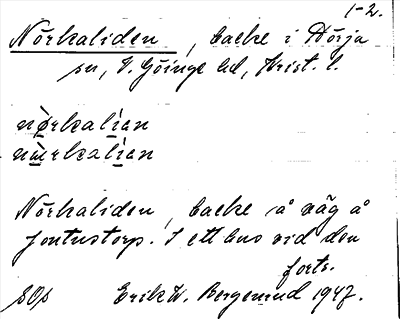 1-2.
Nörkaliden, backe i Hörja
sn, V. Göinge hd, Krist. l.
nørkalian
nœrkalian
Nörkaliden, backe å väg å
Jontustorp. I ett hus vid den
forts.
SOs Erik W. Bergenrud 1947.